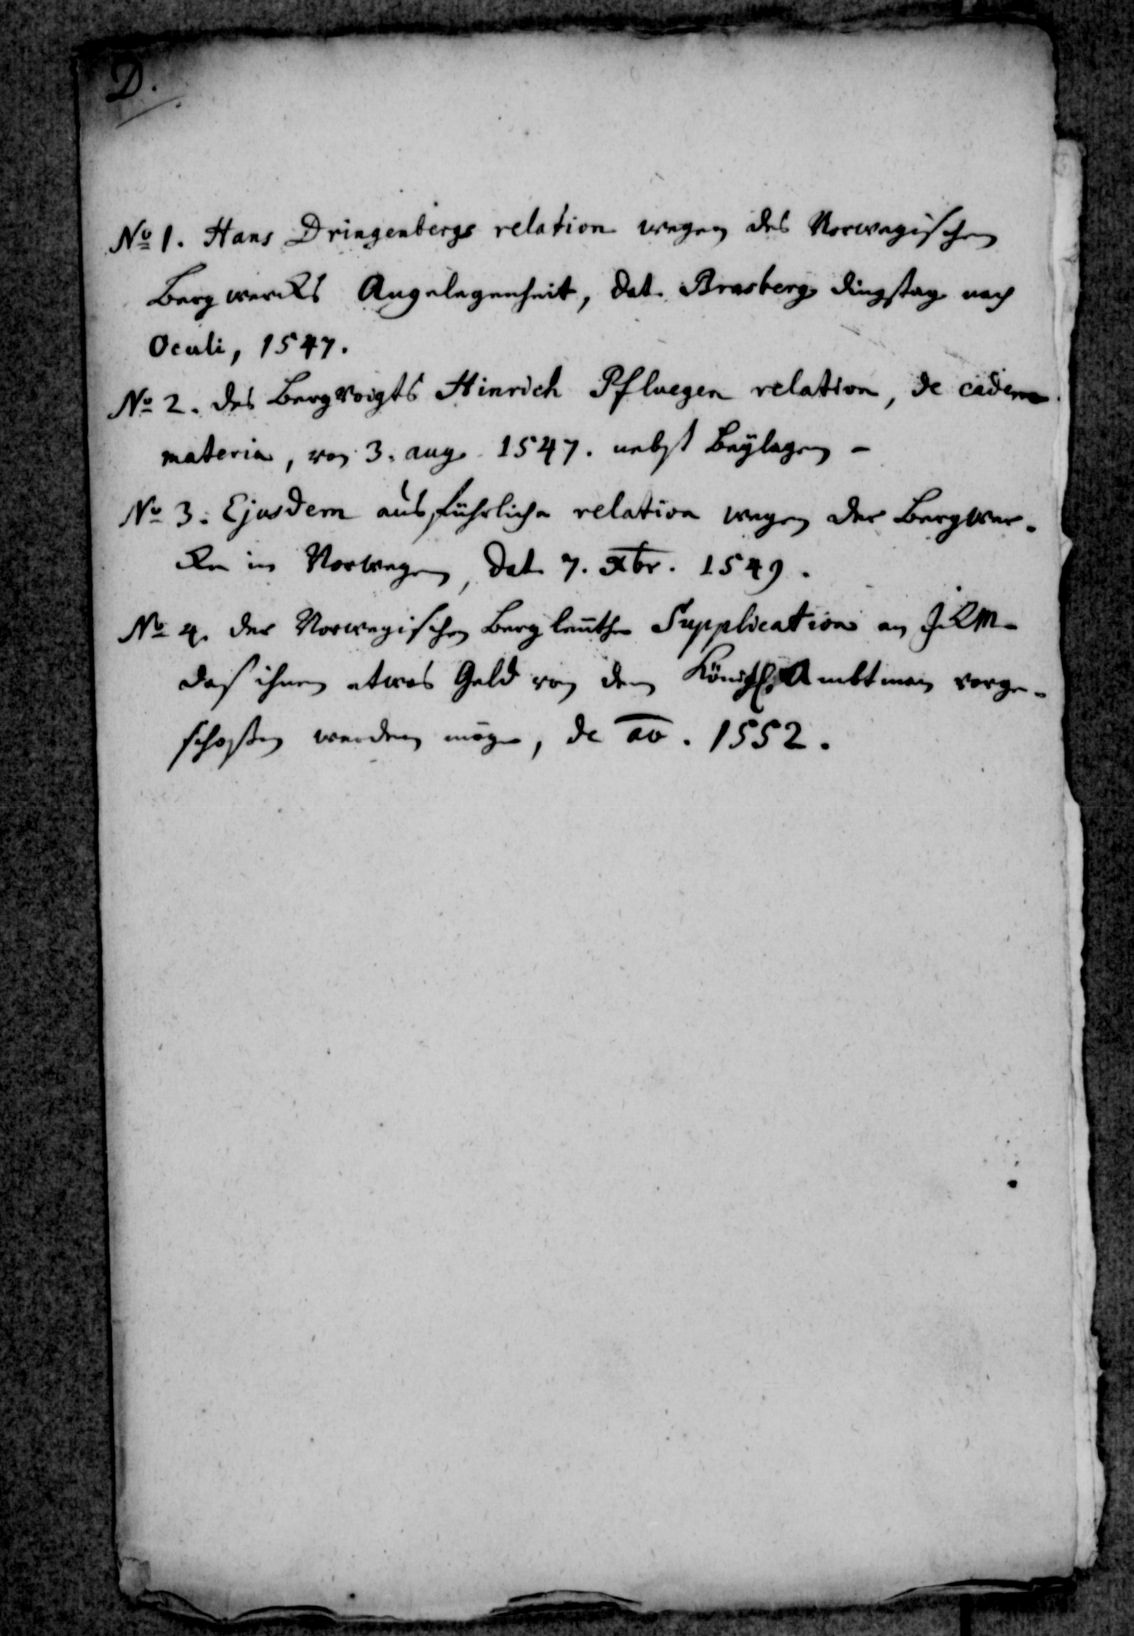 D.
No 1. Hans Dringenbergs relation wegen des Norwegischen
Bergwercks Angelegenheit, dat. Brasberg dingstag nach
Oculi, 1547.
No 2. des Bergvoigts Hinrich Pfluegen relation, de eadem
materia, von 3. aug. 1547. nebst Beÿlagen -
No 3. Ejusdem ausführliche relation wegen der Bergwer-
cke in Norwegen, dat. 7. Xbr. 1549.
No 4. der Norwegischen Bergleuthe Supplication an J.K.M.
daß ihnen etwas Geld von dem Königl. Ambtman vorge-
schoßen werden möge, de ao. 1552.